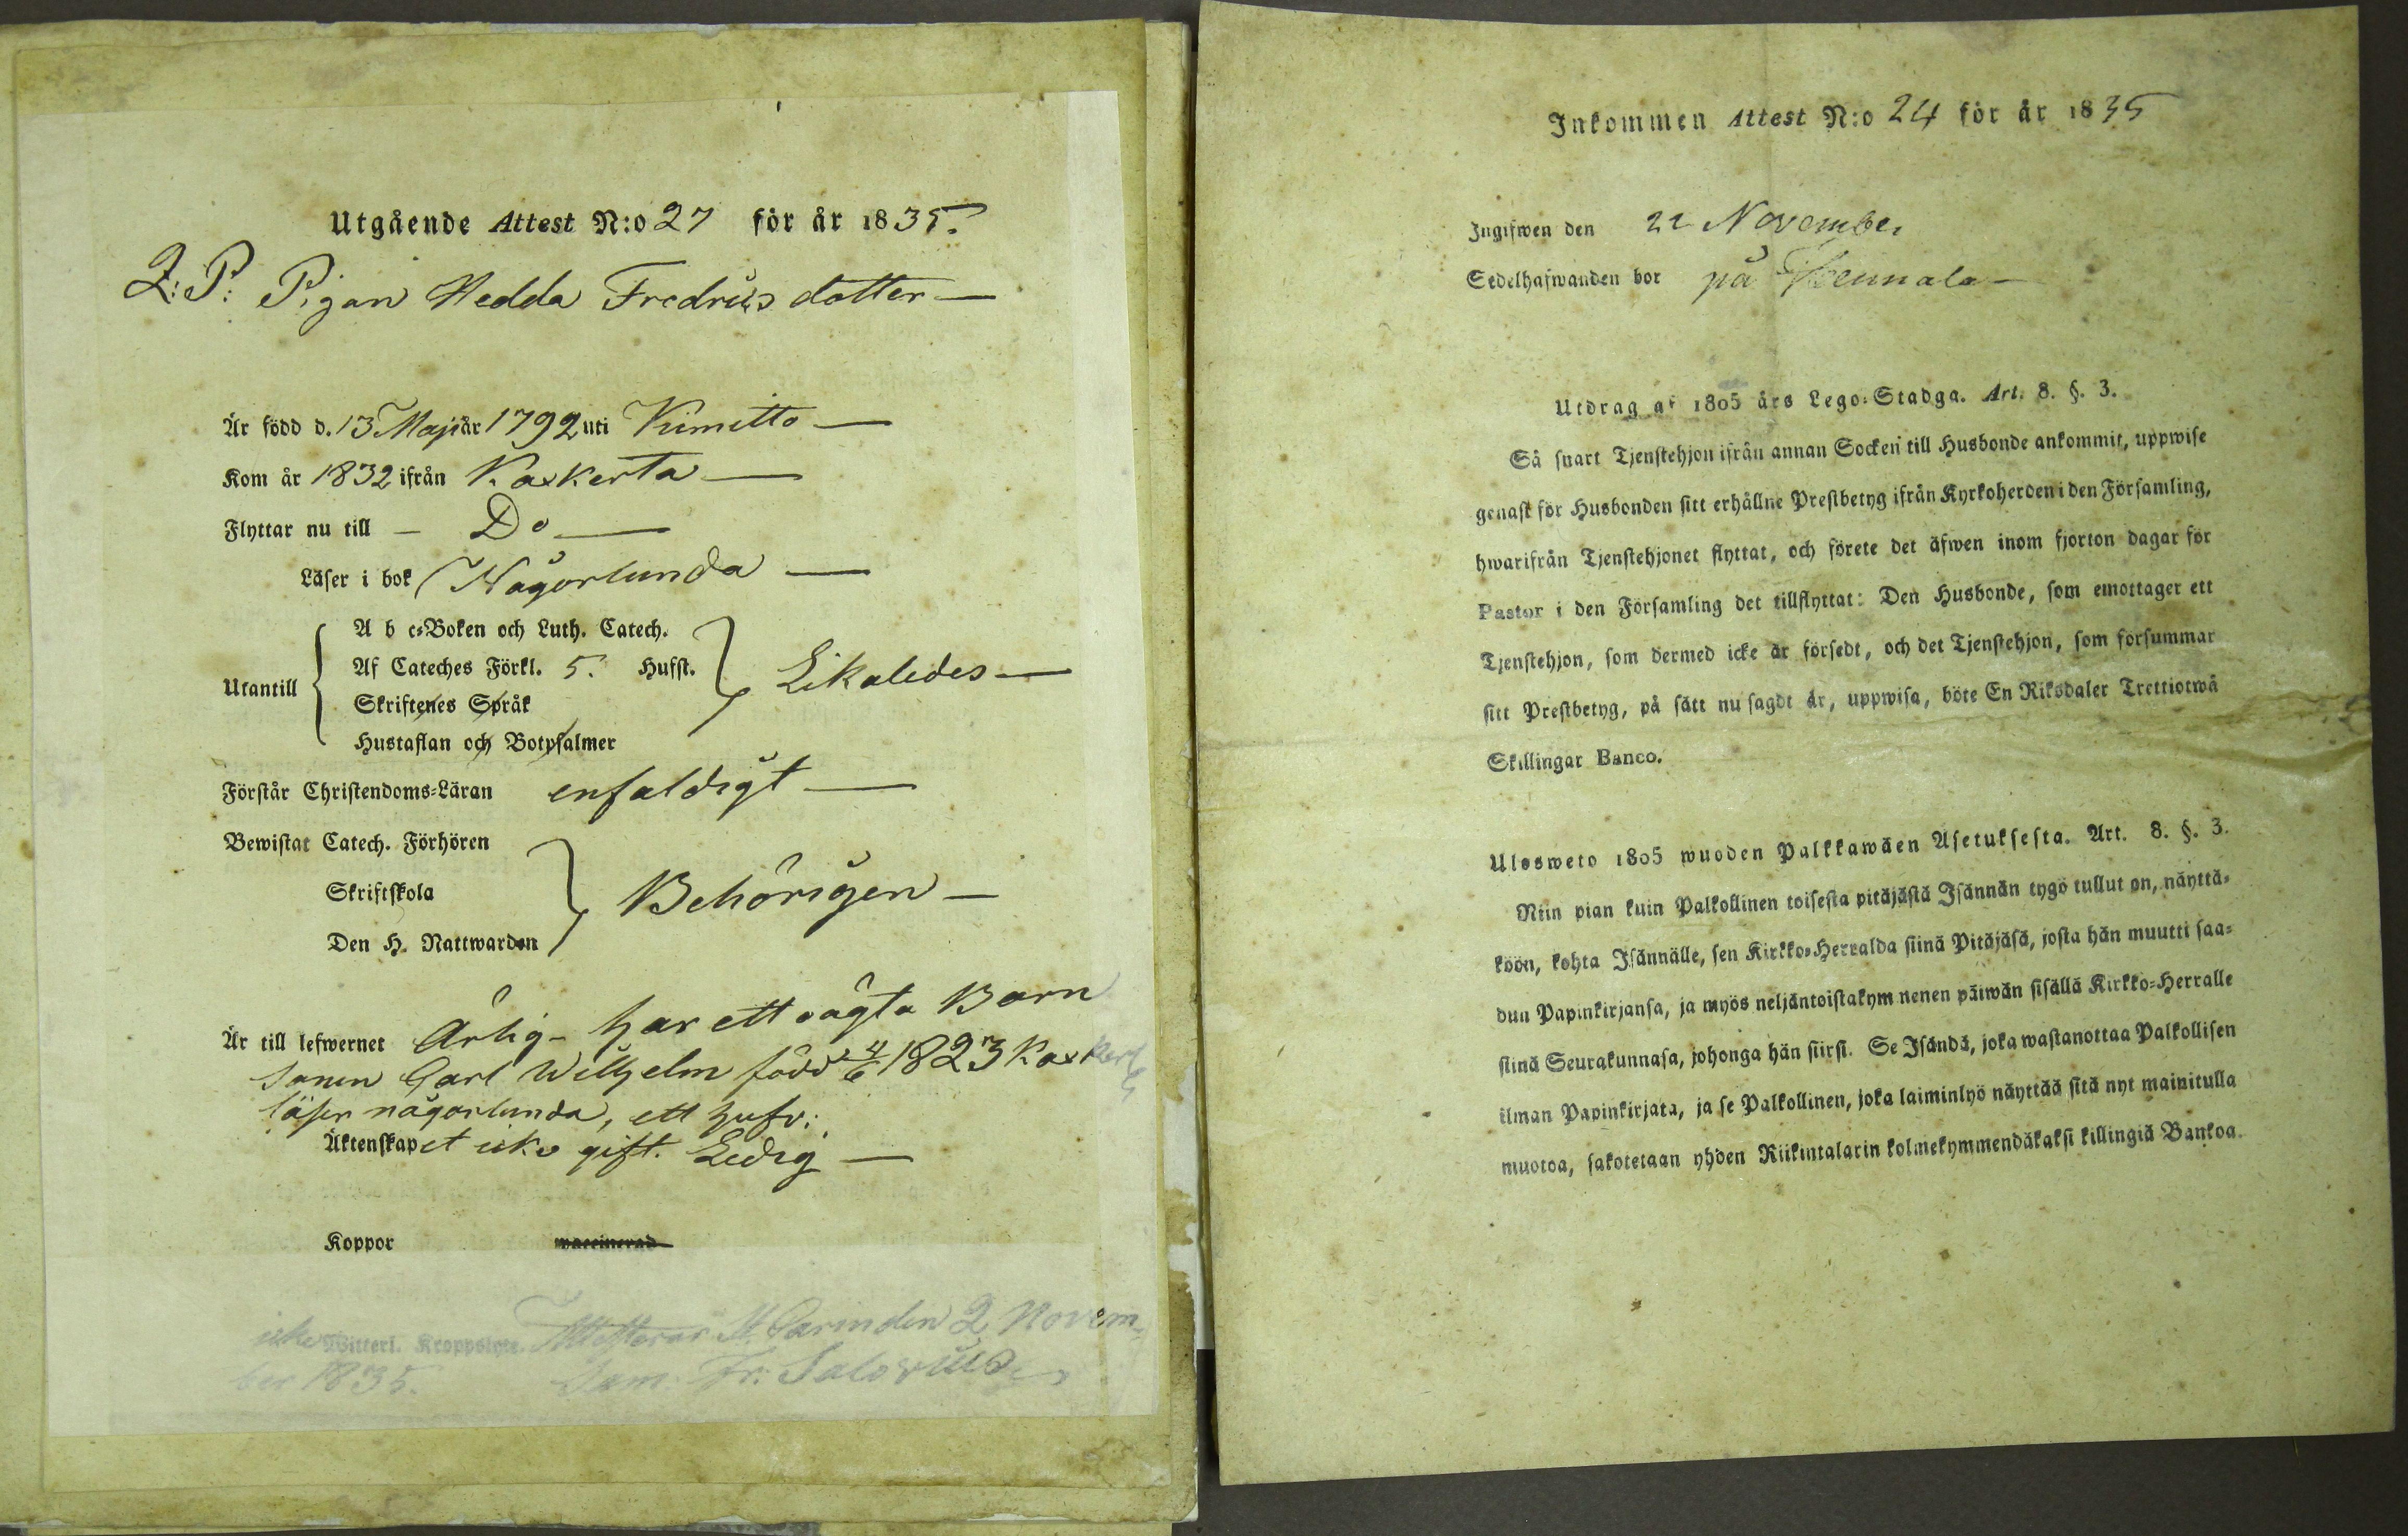 Utgående Attest N:o 27 för år 1835.
L: P: Pigan Hedda Fredriksdotter —
Är född d. 13 Maji år 1792 uti Kimitto —
Kom år 1832 ifrån Kaskerta —
Flyttar nu till — Do —
Läser i bok Någorlunda —
A b c-Boken och Luth. Catech.
Af Cateches Förkl. 5. Hufst.
Utantill Likaledes —
Skriftenes Språk
Hustaflan och Botpsalmer
Förstår Christendoms-Läran enfaldigt —
Bewistat Catech. Förhören
Skriftskola Behörigen —
Den H. Nattwarden
Är till lefwernet Ärlig - har ett oägta Barn
sonen Carl Wilhelm född 24/6 1823 Kaskerta
läser någorlunda, ett hufv:
Äktenskapet icke gift. Ledig —
Koppor waccinerad
icke Witterl. Kroppslyte. Attesterar St. Carin den 2 Novem-
ber 1835. Sam: Fr: Salovius
Inkommen Attest N:o 24 för år 1835
Ingifwen den 22 November
Sedelhafwanden bor på
Utdrag af 1805 års Lego-Stadga. Art. 8. §. 3.
Så snart Tjenstehjon ifrån annan Socken till Husbonde ankommit, uppwise
genast för Husbonden sitt erhållne Prestbetyg ifrån Kyrkoherden i den Församling,
hwarifrån Tjenstehjonet flyttat, och förete det äfwen inom fjorton dagar för
Pastor i den Församling det tillflyttat: Den Husbonde, som emottager ett
Tjenstehjon, som dermed icke är försedt, och det Tjenstehjon, som försummar
sitt Prestbetyg, på sätt nu sagdt är, uppwisa, böte En Riksdaler Trettiotwå
Skillingar Banco.
Ulosweto 1805 wuoden Palkkawäen Asetuksesta. Art. 8. §. 3.
Niin pian kuin Palkollinen toisesta pitäjästä Isännän tygö tullut on, näyttä-
köön, kohta Isännälle, sen Kirkko-Herralda siinä Pitäjäsä, josta hän muutti saa-
dun Papinkirjansa, ja myös neljäntoistakymmenen päiwän sisällä Kirkko-Herralle
siinä Seurakunnasa, johonga hän siirsi. Se Isändä, joka wastanottaa Palkollisen
ilman Papinkirjata, ja se Palkollinen, joka laiminlyö näyttää sitä nyt mainitulla
muotoa, sakotetaan yhden Riikintalarin kolmekymmendäkaksi killingiä Bankoa.